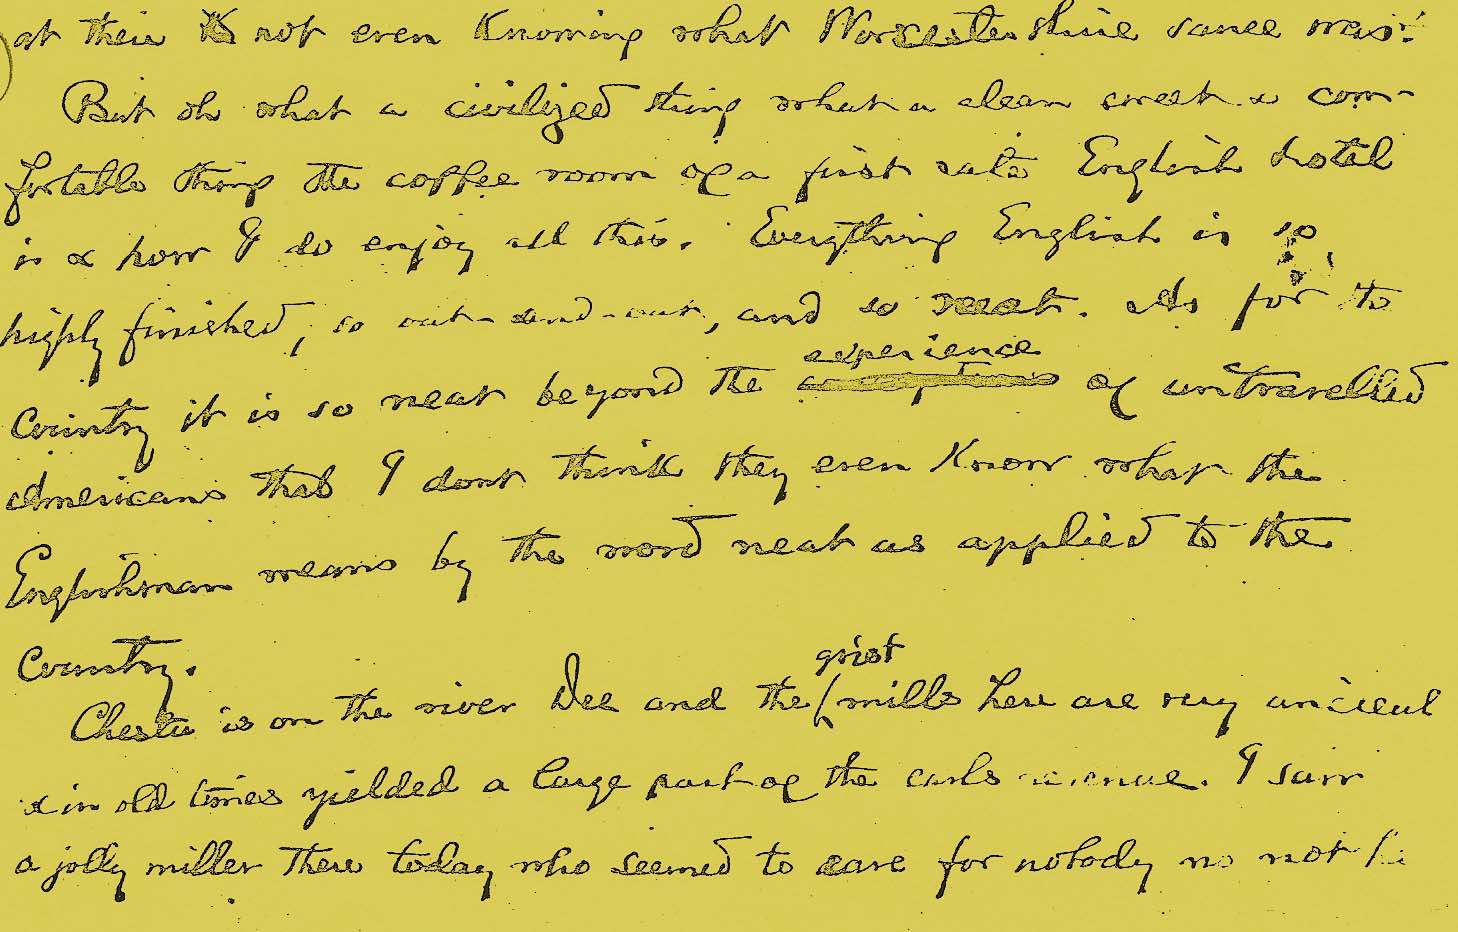 at their not even Knowing what Worcestershire sauce was!
But oh what a civilized thing what a clean sweet & com-
fortable thing the coffee room of a first rate English hotel
is & how I do enjoy all this. Everything English is so
highly finished, so out-and-out, and so neat. As for the
experience
Country it is so neat beyond the of untravelled
Americans that I dont think they even Know what the
Englishman means by the word neat as applied to the
Country.
grist
Chester is on the river Dee and the mills here are very ancient
& in old times yielded a large part of the earls revenue. I saw
a jolly miller there today who seemed to care for nobody no not he